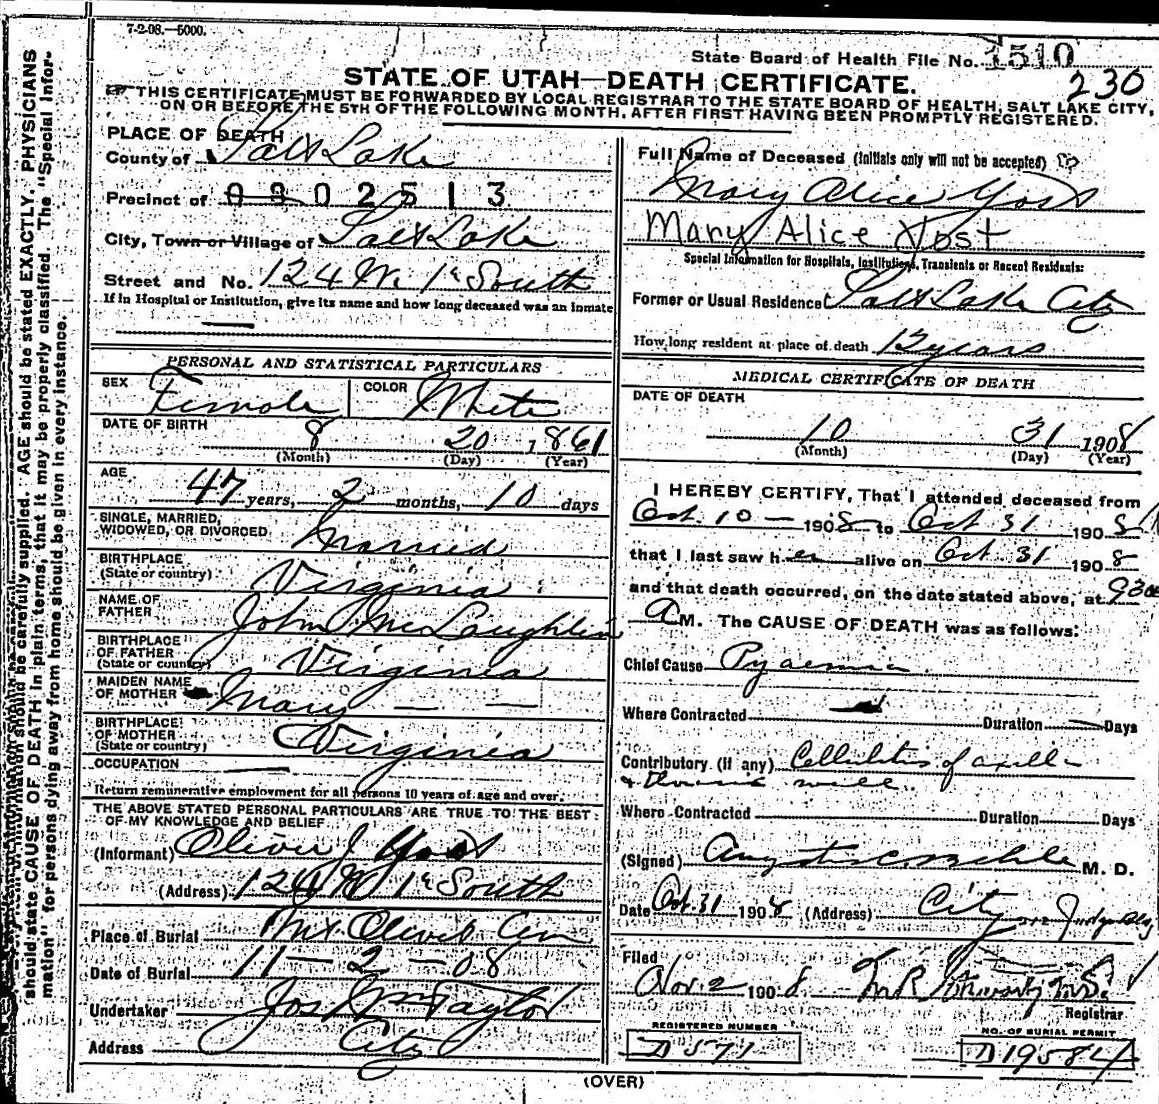 7-2-08.—5000.
State Board of Health File No. 1510
230
STATE OF UTAH—DEATH CERTIFICATE.
THIS CERTIFICATE MUST BE FORWARDED BY LOCAL REGISTRAR TO THE STATE BOARD OF HEALTH, SALT LAKE CITY,
ON OR BEFORE THE 5TH OF THE FOLLOWING MONTH, AFTER FIRST HAVING BEEN PROMPTLY REGISTERED.
PLACE OF DEATH
County of Salt Lake
Precinct of 0902513
City, Town or Village of Salt Lake
Street and No. 124 W. 1st South
If in Hospital or Institution, give its name and how long deceased was an inmate
PERSONAL AND STATISTICAL PARTICULARS
SEX Female COLOR White
DATE OF BIRTH 8 20 1861
(Month) (Day) (Year)
AGE 47 years, 2 months, 10 days
SINGLE, MARRIED,
WIDOWED, OR DIVORCED Married
BIRTHPLACE
(State or country) Virginia
NAME OF
FATHER John McLaughlin
BIRTHPLACE
OF FATHER
(State or country) Virginia
MAIDEN NAME
OF MOTHER Mary — —
BIRTHPLACE
OF MOTHER
(State or country) Virginia
OCCUPATION
Return remunerative employment for all persons 10 years of age and over.
THE ABOVE STATED PERSONAL PARTICULARS ARE TRUE TO THE BEST
OF MY KNOWLEDGE AND BELIEF
(Informant) Oliver J Yost
(Address) 124 W 1st South
Place of Burial Mt. Olivet Cem
Date of Burial 11 — 2 — 08
Undertaker Jos Wm Taylor
Address City
Full Name of Deceased (initials only will not be accepted)
Mary Alice Yost
Mary Alice Yost
Special Information for Hospitals, Institutions, Transients or Recent Residents:
Former or Usual Residence Salt Lake City
How long resident at place of death 12 years
MEDICAL CERTIFICATE OF DEATH
DATE OF DEATH
10 31 1908
(Month) (Day) (Year)
I HEREBY CERTIFY, That I attended deceased from
Oct. 10 — 1908 to Oct 31 1908
that I last saw her alive on Oct. 31 1908
and that death occurred, on the date stated above, at 930
A M. The CAUSE OF DEATH was as follows:
Chief Cause Pyaemia
Where Contracted Duration Days
Contributory (if any) Cellulitis of axilla
& wall
Where Contracted Duration Days
(Signed) M. D.
Date Oct. 31 1908 (Address) City Judge Bldg
Filed
Nov. 2 1908
Registrar
REGISTERED NUMBER
D 571
NO. OF BURIAL PERMIT
D 19584
(OVER)
mation should be carefully supplied. AGE should be stated EXACTLY. PHYSICIANS
should state CAUSE OF DEATH in plain terms, that it may be properly classified. The "Special Infor-
mation" for persons dying away from home should be given in every instance.